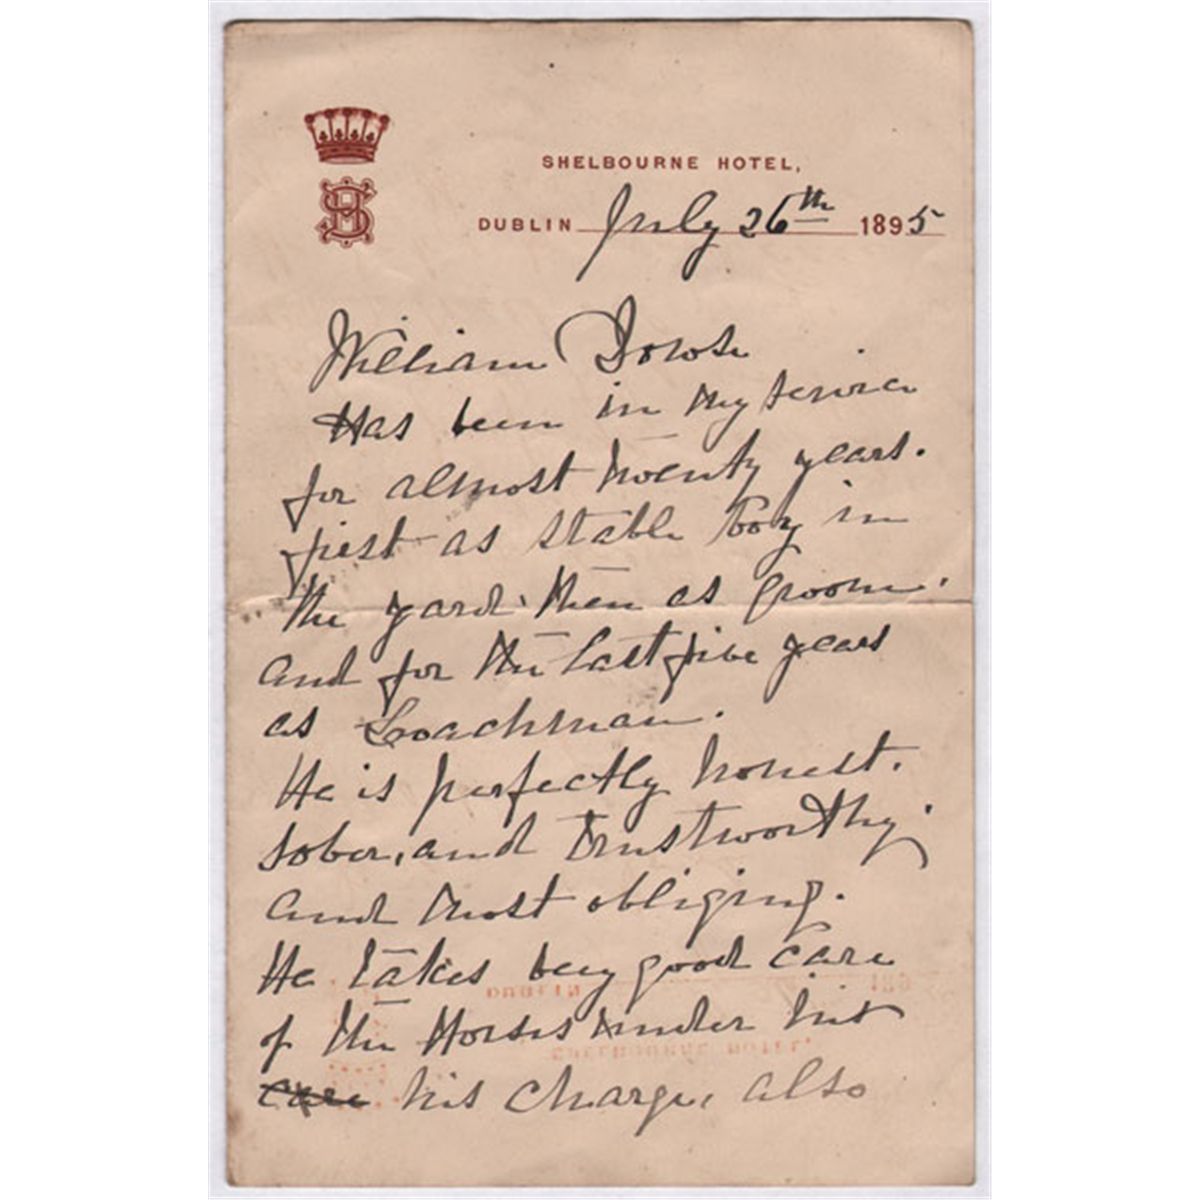 SHELBOURNE HOTEL,
DUBLIN July 26th 1895
William Dowse
Has been in my service
for almost twenty years.
first as stable boy in
the yard. then as groom.
and for the last five years
as Coachman.
He is perfectly honest.
sober, and trustworthy.
and most obliging.
He takes very good care
of the Horses under his
care his charge, also